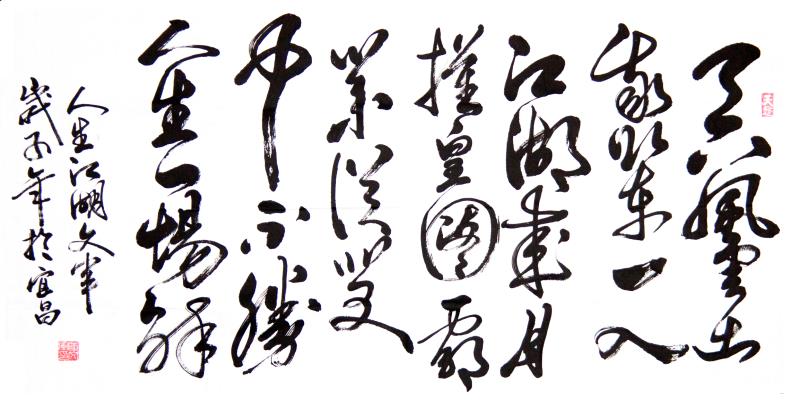 天下風雲出
我輩一入
江湖歲月
催皇圖霸
業談笑
中不勝
人生一場醉
人生江湖文
戊子年於宜昌